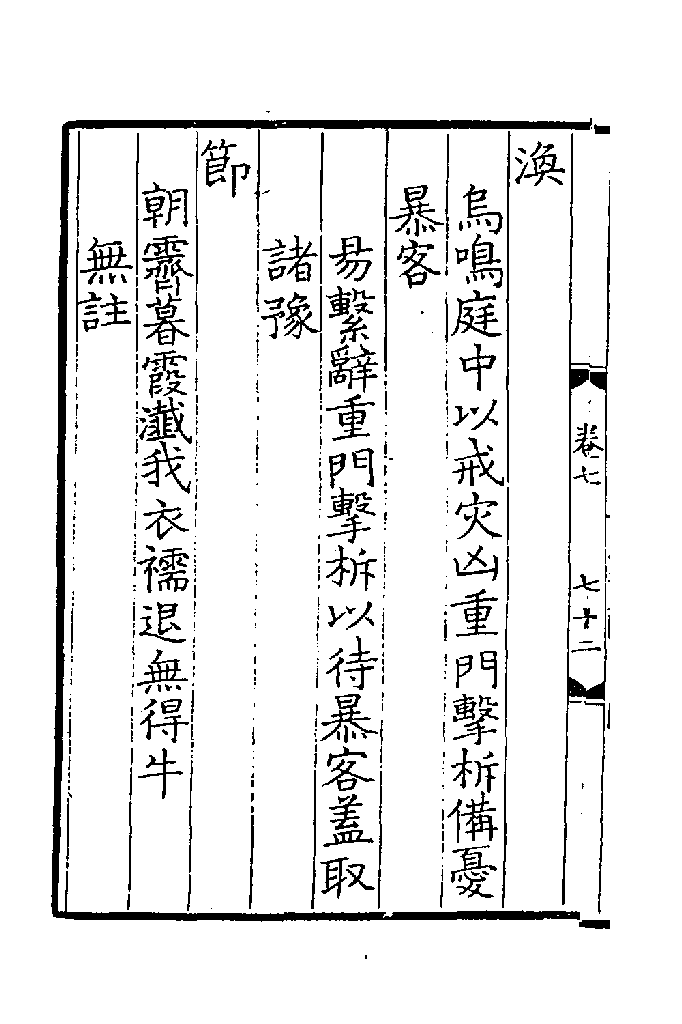 渙
烏鳴庭中以戒灾凶重門擊柝備憂
暴客
易繫辭重門擊柝以待暴客蓋取
諸豫
節
朝霽暮霞瀸我衣襦退無得牛
無註
卷七
七十二